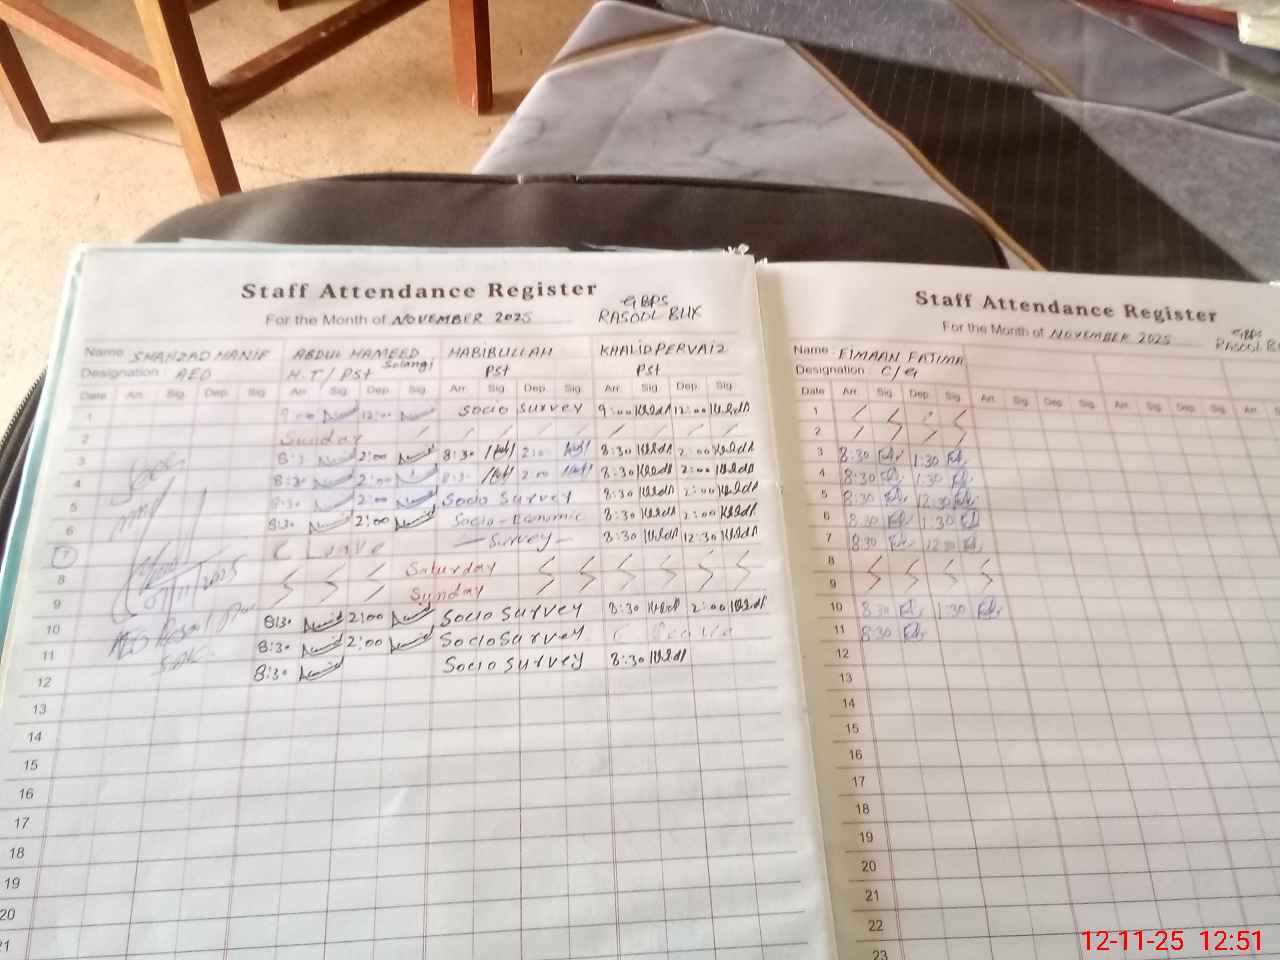 Staff Attendance Register
For the Month of NOVEMBER 2025
GBPS
RASOOL BUX
Name SHAHZAD HANIF ABDUL HAMEED Solangi HABIBULLAH KHALID PERVAIZ
Designation AEO H.T / PST PST PST
Date Arr. Sig. Dep. Sig. Arr. Sig. Dep. Sig. Arr. Sig. Dep. Sig. Arr. Sig. Dep. Sig.
1 9:00 12:00 Socio Survey 9:00 Khalid 12:00 Khalid
2 Sunday
3 8:3 2:00 8:30 2:00 8:30 Khalid 2:00 Khalid
4 8:30 2:00 8:30 2:00 8:30 Khalid 2:00 Khalid
5 8:30 2:00 Socio Survey 8:30 Khalid 2:00 Khalid
6 8:30 2:00 Socio-Economic 8:30 Khalid 2:00 Khalid
7 C Leave - Survey - 8:30 Khalid 12:30 Khalid
8 Saturday
9 Sunday
10 8:30 2:00 Socio Survey 8:30 Khalid 2:00 Khalid
11 8:30 2:00 Socio Survey C Leave
12 8:30 Socio Survey 8:30 Khalid
13
14
15
16
17
18
19
20
21
Staff Attendance Register
For the Month of NOVEMBER 2025
GBPS
RASOOL B
Name EIMAAN FATIMA
Designation C/G
Date Arr. Sig. Dep. Sig. Arr. Sig. Dep. Sig. Arr. Sig. Dep. Sig. Arr.
1
2
3 8:30 1:30
4 8:30 1:30
5 8:30 12:30
6 8:30 1:30
7 8:30 12:30
8
9
10 8:30 1:30
11 8:30
12
13
14
15
16
17
18
19
20
21
22
23
12-11-25 12:51